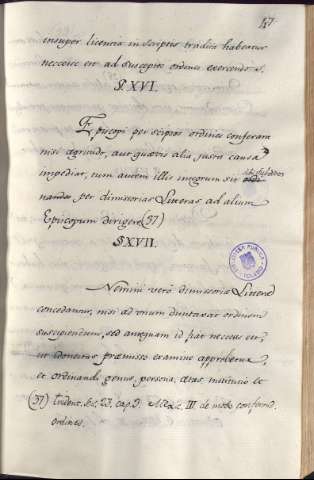 47
insuper licentia in scriptis tradita habeatur
necesse est ad suscepto ordine exercendos.
§ XVI.
Episcopi per seipsos ordines conferant
nisi aegritudo, aut quaevis alia justa causa
impediat, tum autem illis integrum sit
nandos per dimissorias Litteras ad alium
Episcopum dirigere (37)
§ XVII.
Nemini vero dimissoria Littera
concedantur, nisi ad unum duntaxat ordinem
suscipiendum, sed antequam id fiat necesse est,
ut Idoneitas praemisso examine approbetur,
et ordinandi genus, persona, aetas, institutio et
(37) Trident. Ses. 23. cap. 3. III de modo conferend.
ordines.
BIBLIOTECA PUBLICA
TOLEDO